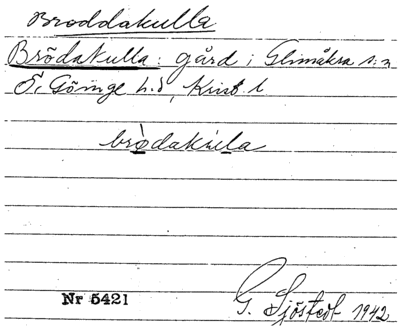 Broddakulla
Brödakulla: gård i Glimåkra s:n
Ö. Göinge h.d, Krist. l
brodakula
Nr 5421
G. Sjöstedt 1942